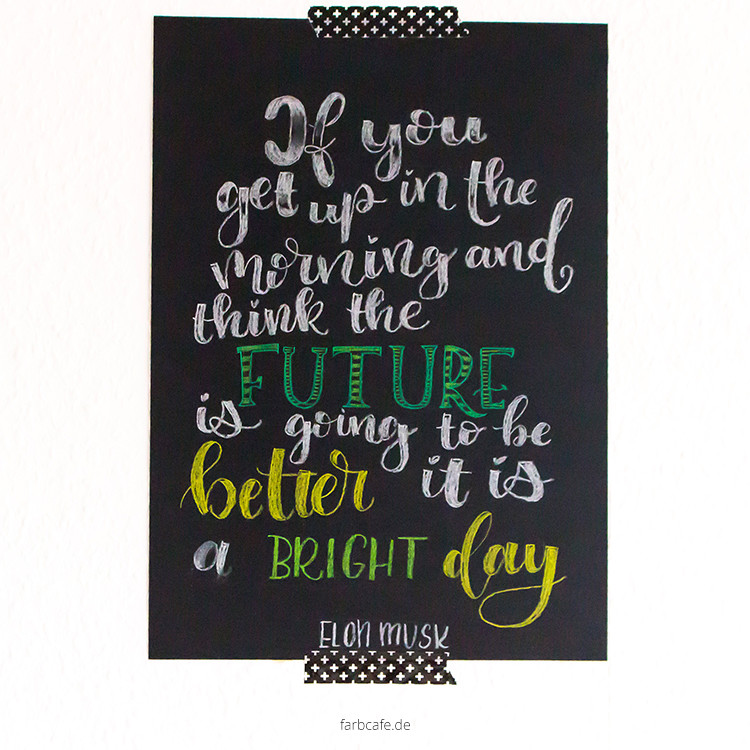 If you
get up in the
morning and
think the
FUTURE
is going to be
better it is
a BRIGHT day
ELON MUSK
farbcafe.de